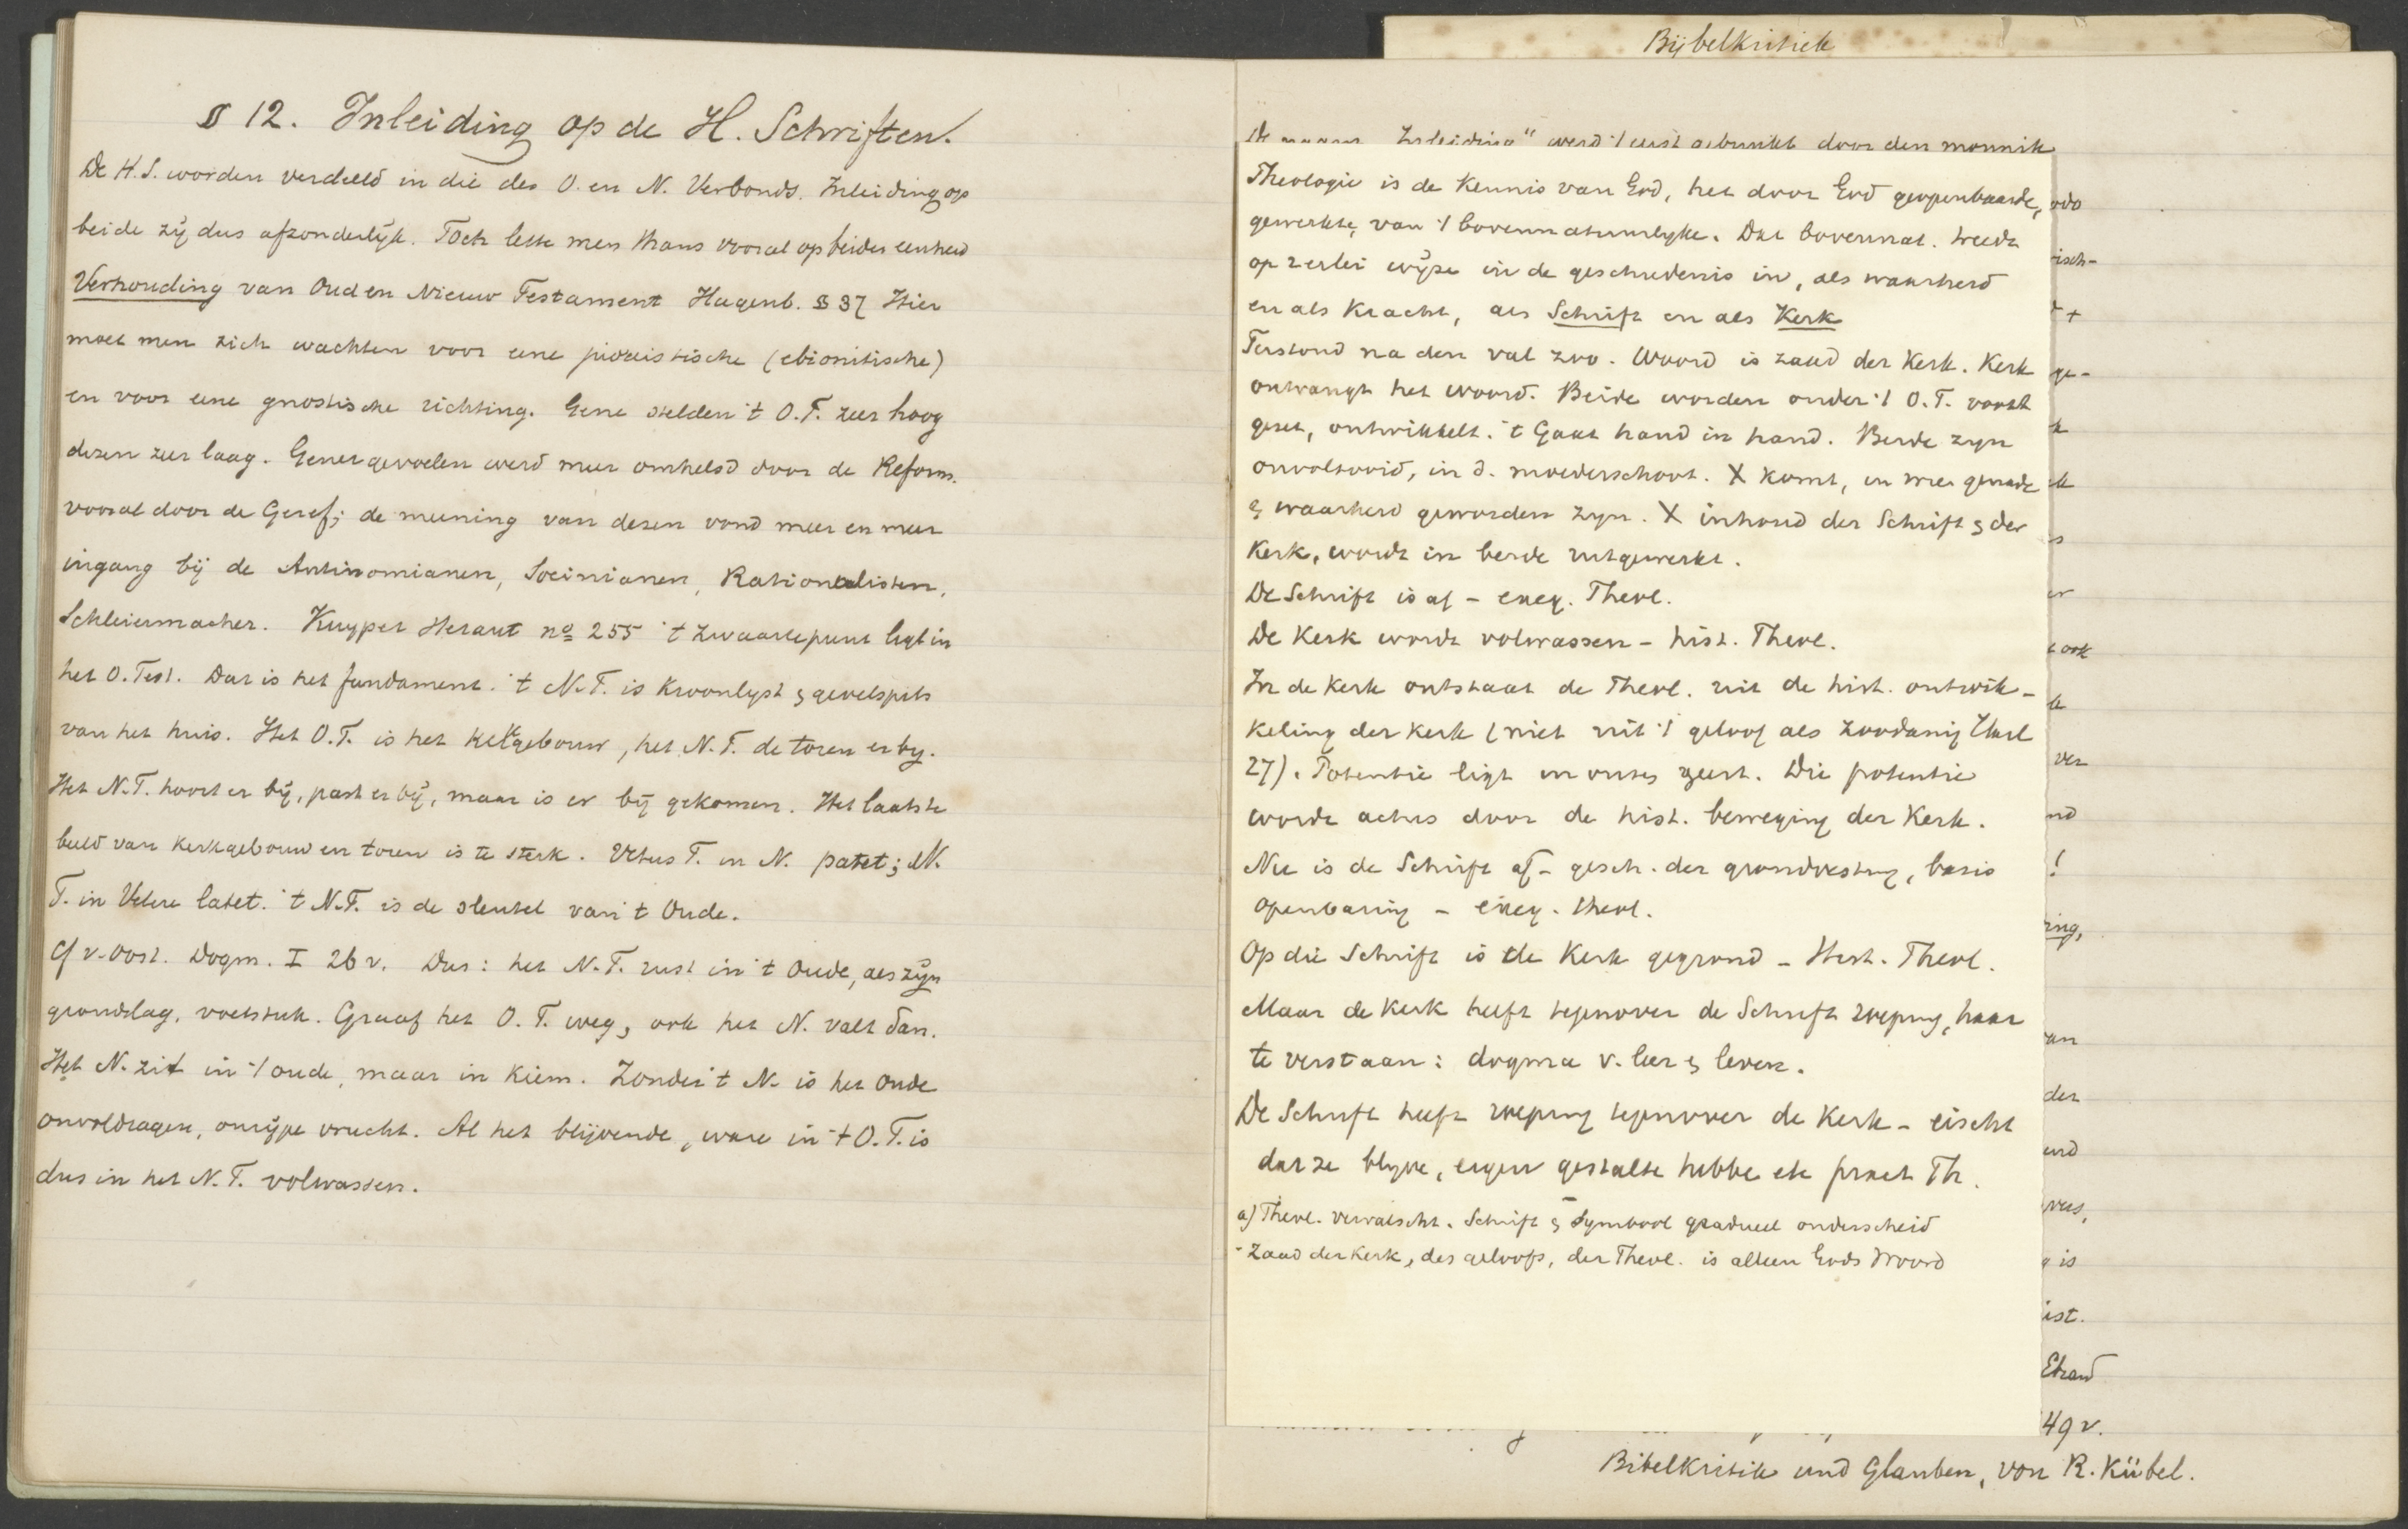 § 12. Inleiding op de H. Schriften.
De H.S. worden verdeeld in die des O. en N. Verbonds. Inleiding op
beide zij dus afzonderlijk. Toch lette men thans vooral op beider eenheid
Verhouding van Oud en Nieuw Testament Hagenb. § 37 Hier
moet men zich wachten voor eene judaistische (ebionitische)
en voor eene gnostische richting. Gene stelden 't O.T. zeer hoog
dezen zeer laag. Gener gevoelen werd meer omhelsd door de Reform.
vooral door de Geref; de meening van dezen vond meer en meer
ingang bij de Antinomianen, Socinianen, Rationalisten,
Schleiermacher. Kuyper Heraut no 255 't zwaartepunt ligt in
het O. Test. Dat is het fundament. 't N.T. is Kroonlyst & gevelspits
van het huis. Het O.T. is het Kerkgebouw, het N.T. de toren er by.
Het N.T. hoort er bij, past er bij, maar is er bij gekomen. Het laatste
beeld van Kerkgebouw en toren is te sterk. Vetus T. in N. patet; N.
T. in Vetere latet. 't N.T. is de sleutel van 't Oude.
Cf v. Oost. Dogm. I 26 v. Dus: het N.T. rust in 't Oude, als zijn
grondslag, voetstuk. Graaf het O.T. weg, ook het N. valt dan.
Het N. zit in 't oude, maar in Kiem. Zonder 't N. is het Oude
onvoldragen, onrijpe vrucht. Al het blijvende, ware in 't O.T. is
dus in het N.T. volwassen.
Bijbelkritiek
De naam Inleiding" werd 't eerst gebruikt door den monnik
Theologie is de Kennis van God, het door God geopenbaarde,
gewerkte, van 't bovennatuurlyke. Dat bovennat. treedt
op 2erlei wijze in de geschiedenis in, als waarheid
en als Kracht, als Schrift en als Kerk
Terstond na den val zoo. Woord is zaad der Kerk. Kerk
ontvangt het woord. Beide worden onder 't O.T. voort
gezet, ontwikkelt. 't Gaat hand in hand. Beide zyn
onvoltooid, in d. moederschoot. X komt, in wien genade
& waarheid geworden zyn. X inhoud der Schrift & der
Kerk, wordt in beide uitgewerkt.
De Schrift is af – exeg. Theol.
De Kerk wordt volwassen – hist. Theol.
In de Kerk ontstaat de Theol. uit de hist. ontwik-
keling der Kerk (niet uit 't geloof als zoodanig
27). Potentie ligt in onzen geest. Die potentie
wordt actus door de hist. beweging der Kerk.
Nu is de Schrift af – gesch. der grondvesting, basis
openbaring – exeg. theol.
Op die Schrift is de Kerk gegrond – Hist. Theol.
Maar de Kerk heeft tegenover de Schrift roeping, haar
te verstaan: dogma v. leer & leven.
De Schrift heeft roeping tegenover de Kerk – eischt
dat ze blyve, eigen gestalte hebbe etc pract Th.
a) Theol. vervalscht. Schrift & Symbool gradueel onderscheid
- Zaad der Kerk, des geloofs, der Theol. is alleen Gods Woord
isch-
ge-
ook
ver
nd
!
ing,
van
der
end
is
ist.
49 v.
Bibelkritik und Glauben, von R. Kübel.